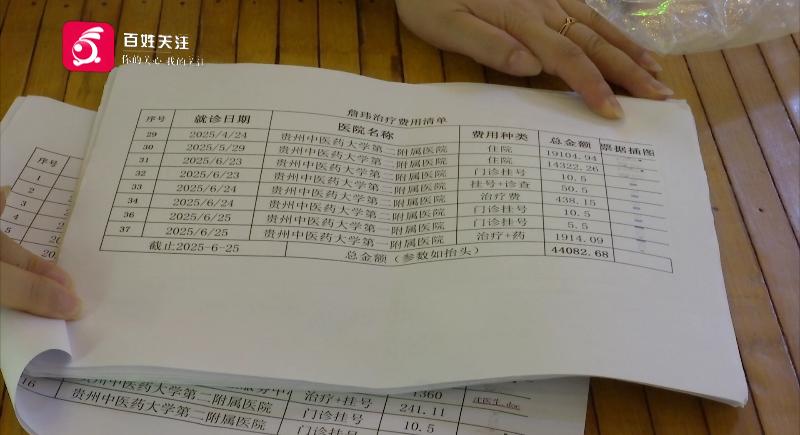 百姓关注
你的关心·我的关注
詹玮治疗费用清单
序号 就诊日期 医院名称 费用种类 总金额 票据插图
29 2025/4/24 贵州中医药大学第二附属医院 住院 19104.94
30 2025/5/29 贵州中医药大学第二附属医院 住院 14322.26
31 2025/6/23 贵州中医药大学第二附属医院 门诊挂号 10.5
32 2025/6/23 贵州中医药大学第二附属医院 挂号+诊查 50.5
33 2025/6/24 贵州中医药大学第二附属医院 治疗费 438.15
34 2025/6/24 贵州中医药大学第二附属医院 门诊挂号 10.5
36 2025/6/25 贵州中医药大学第一附属医院 门诊挂号 5.5
37 2025/6/25 贵州中医药大学第一附属医院 治疗+药 1914.09
截止2025-6-25 总金额（参数如抬头） 44082.68
序号
1
2
3
4
5
16 贵州中医药大学第二附属医院 治疗+挂号 241.11
贵州中医药大学第二附属医院 门诊挂号 10.5
门诊挂号
1360